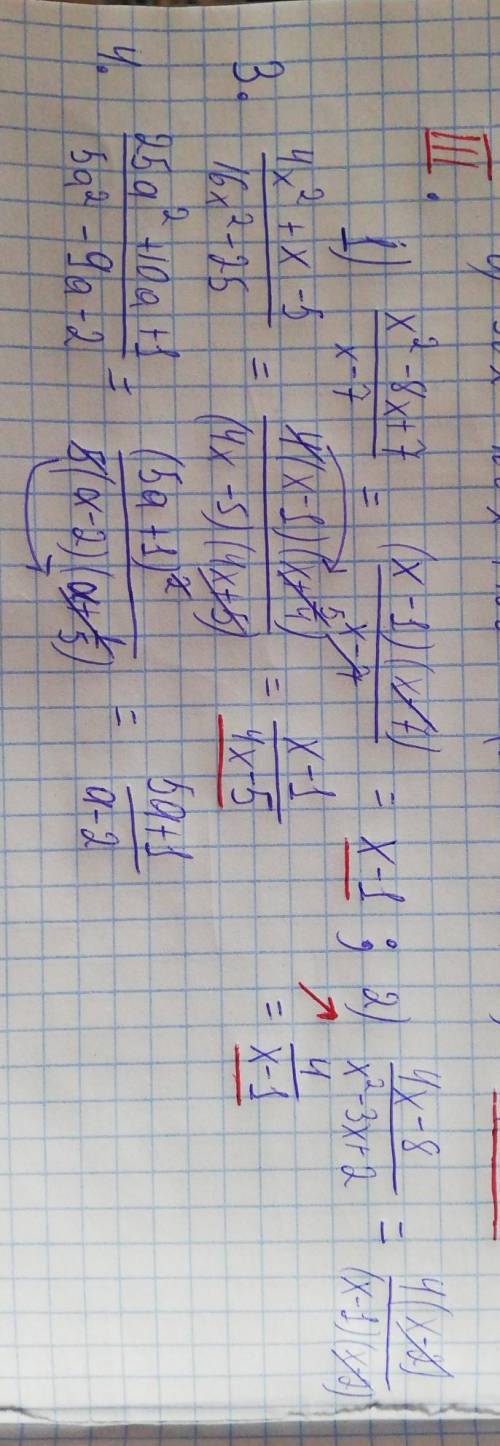 III.
1) (x² - 8x + 7)/(x - 7) = ((x - 1)(x - 7))/(x - 7) = x - 1 ; 2) (4x - 8)/(x² - 3x + 2) = (4(x - 2))/((x - 1)(x - 2))
= 4/(x - 1)
3. (4x² + x - 5)/(16x² - 25) = (4(x - 1)(x + 5/4))/((4x - 5)(4x + 5)) = (x - 1)/(4x - 5)
4. (25a² + 10a + 1)/(5a² - 9a - 2) = (5a + 1)²/(5(a - 2)(a + 1/5)) = (5a + 1)/(a - 2)